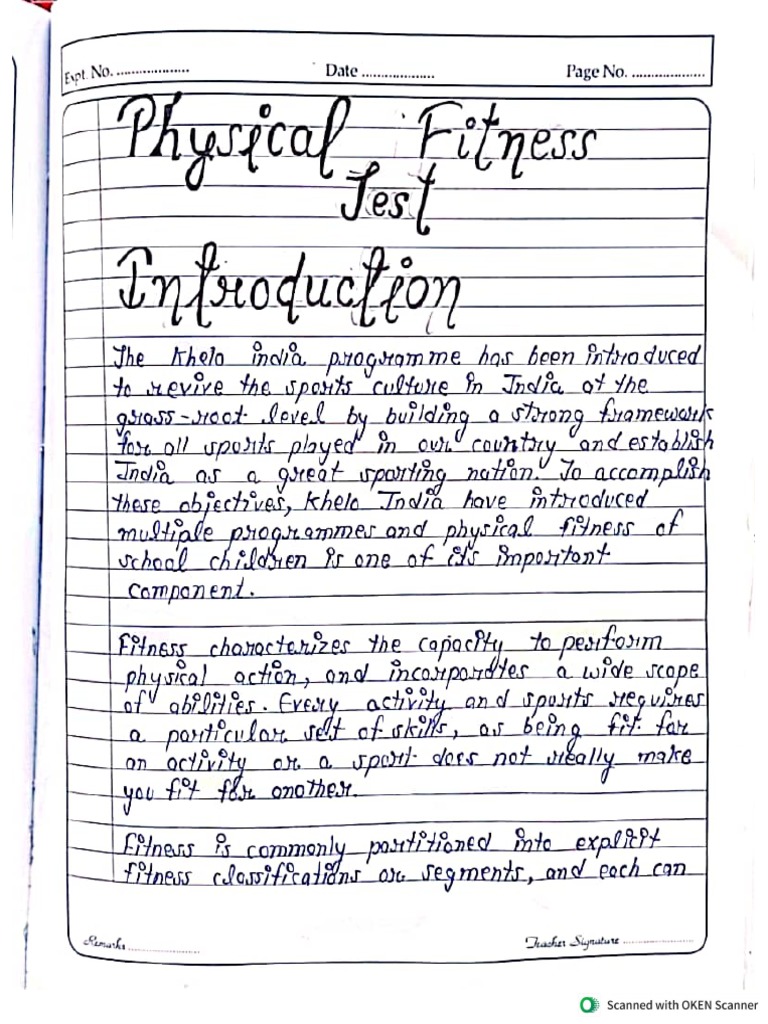 Expt. No. ...................
Date ...................
Page No. ...................
Physical Fitness
Test
Introduction
The Khelo india programme has been introduced
to revive the sports culture in India at the
grass-root level by building a strong framework
for all sports played in our country and establish
India as a great sporting nation. To accomplish
these objectives, Khelo India have introduced
multiple programmes and physical fitness of
school children is one of its important
component.
Fitness characterizes the capacity to perform
physical action, and incorporates a wide scope
of abilities. Every activity and sports requires
a particular set of skills, as being fit for
an activity or a sport does not really make
you fit for another.
Fitness is commonly partitioned into explicit
fitness classifications or segments, and each can
Remarks ...................
Teacher Signature ...................
Scanned with OKEN Scanner